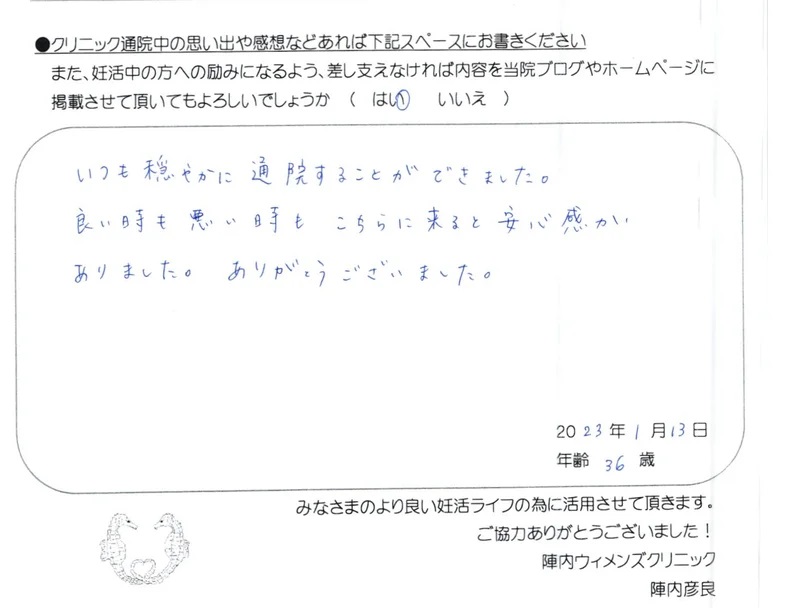 ●クリニック通院中の思い出や感想などあれば下記スペースにお書きください
また、妊活中の方への励みになるよう、差し支えなければ内容を当院ブログやホームページに
掲載させて頂いてもよろしいでしょうか （ はい いいえ ）
いつも穏やかに通院することができました。
良い時も悪い時も こちらに来ると安心感が
ありました。 ありがとうございました。
2023年1月13日
年齢 36 歳
みなさまのより良い妊活ライフの為に活用させて頂きます。
ご協力ありがとうございました！
陣内ウィメンズクリニック
陣内彦良